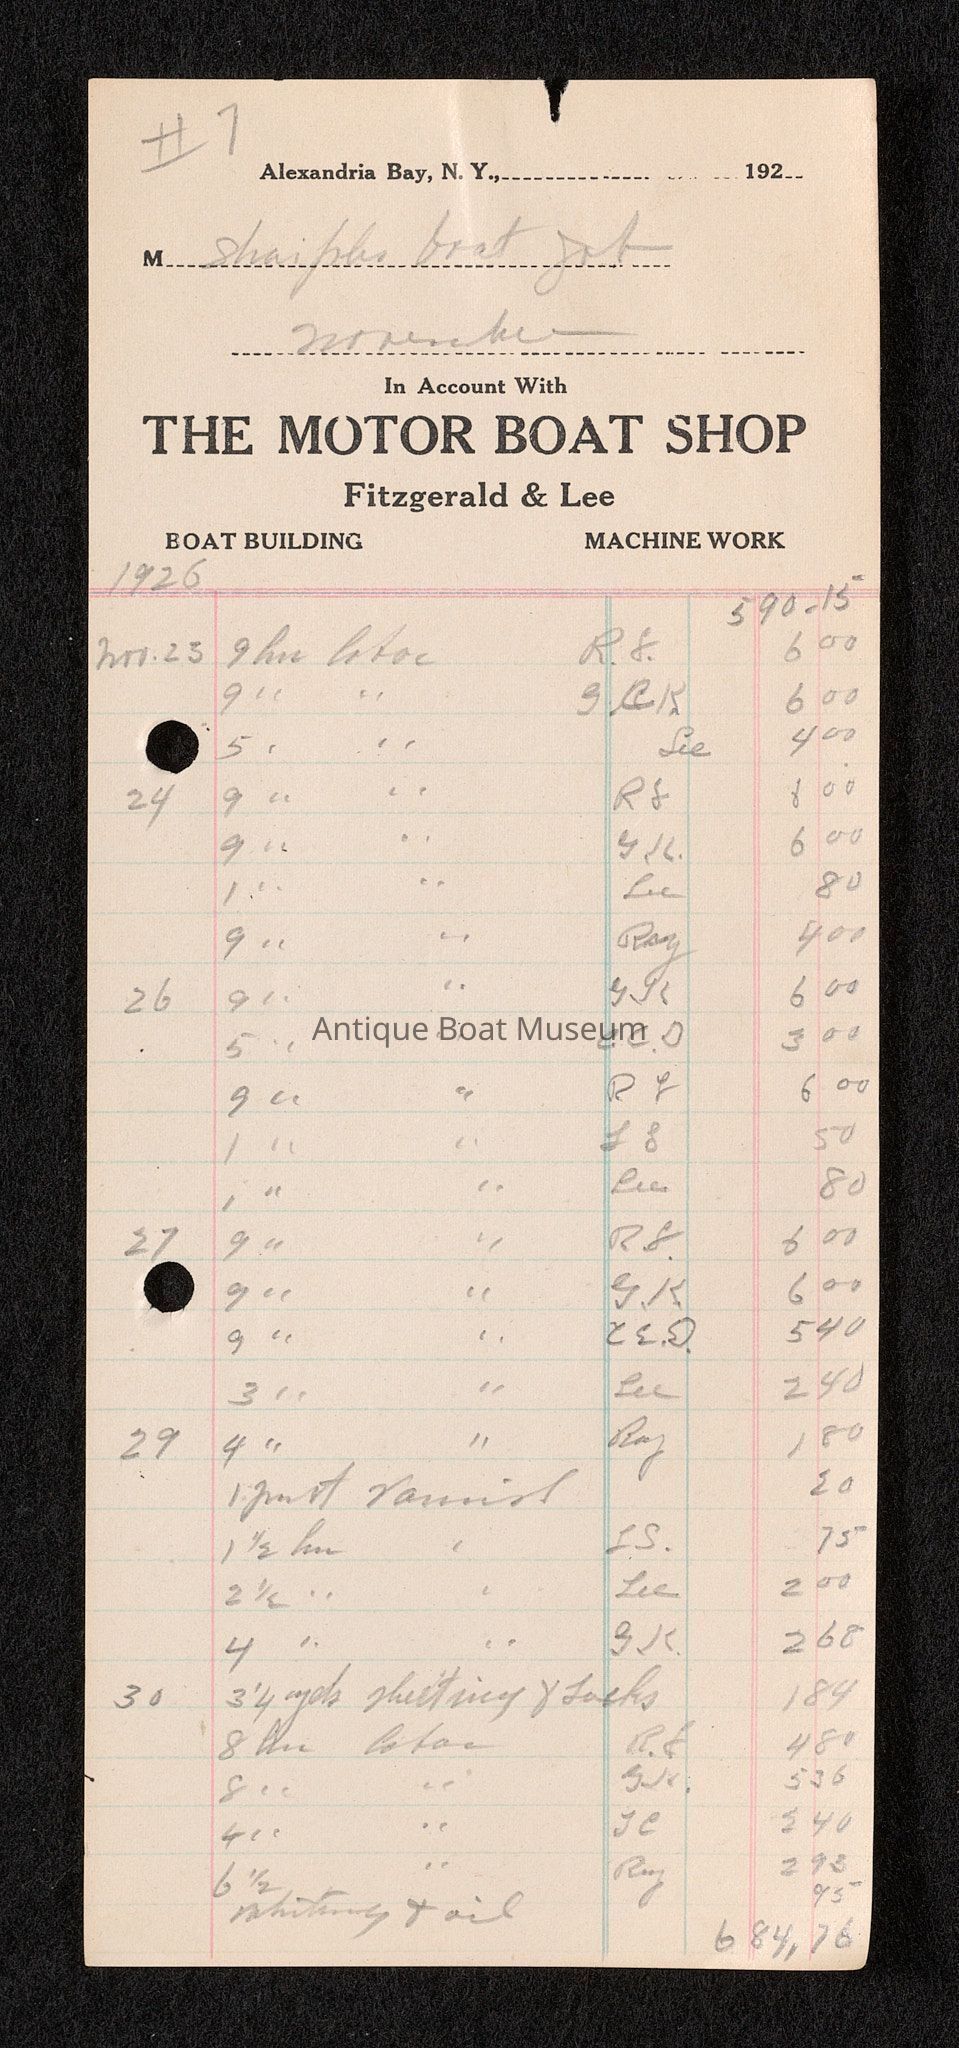 #7
Alexandria Bay, N. Y., 192
M boat Job
November
In Account With
THE MOTOR BOAT SHOP
Fitzgerald & Lee
BOAT BUILDING MACHINE WORK
1926
590.15
Nov. 23 9 hrs labor 6 00
9 " " 6 00
5 " " Lee 4 00
24 9 " " 00
9 " " G.K. 6 00
1 " " Lee 80
9 " " Ray 4 00
26 9 " " G K 6 00
Antique Boat Museum
5 " " 3 00
9 " " 6 00
1 " " 50
1 " " Lee 80
27 9 " " 6 00
9 " " G.K. 6 00
9 " " 5 40
3 " " Lee 2 40
29 4 " " Ray 1 80
1 pint varnish 20
1 1/2 hrs " 75
2 1/2 " " Lee 2 00
4 " " G.K. 2 68
30 3 1/4 yds sheeting & tacks 1 84
8 hrs labor 4 80
8 " " G.K. 5 36
4 " " 2 40
6 1/2 " Ray 2 93
whiting & oil 95
684,76